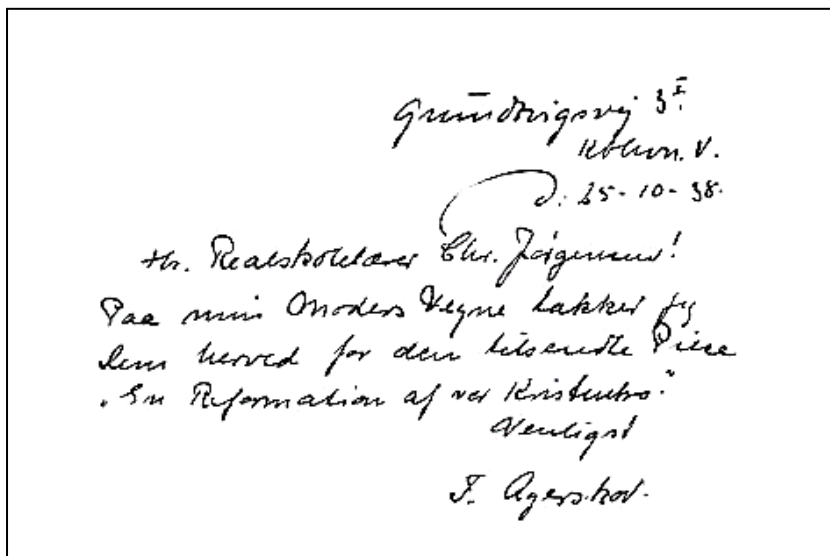 Grundtvigsvej 3 I.
Kbhvn. V.
d. 25-10-38.
Hr. Realskolelærer Chr. Jørgensen!
Paa min Moders Vegne takker jeg
Dem herved for den tilsendte Piece
"En Reformation af vor Kristentro."
Venligst
F. Agerskov.